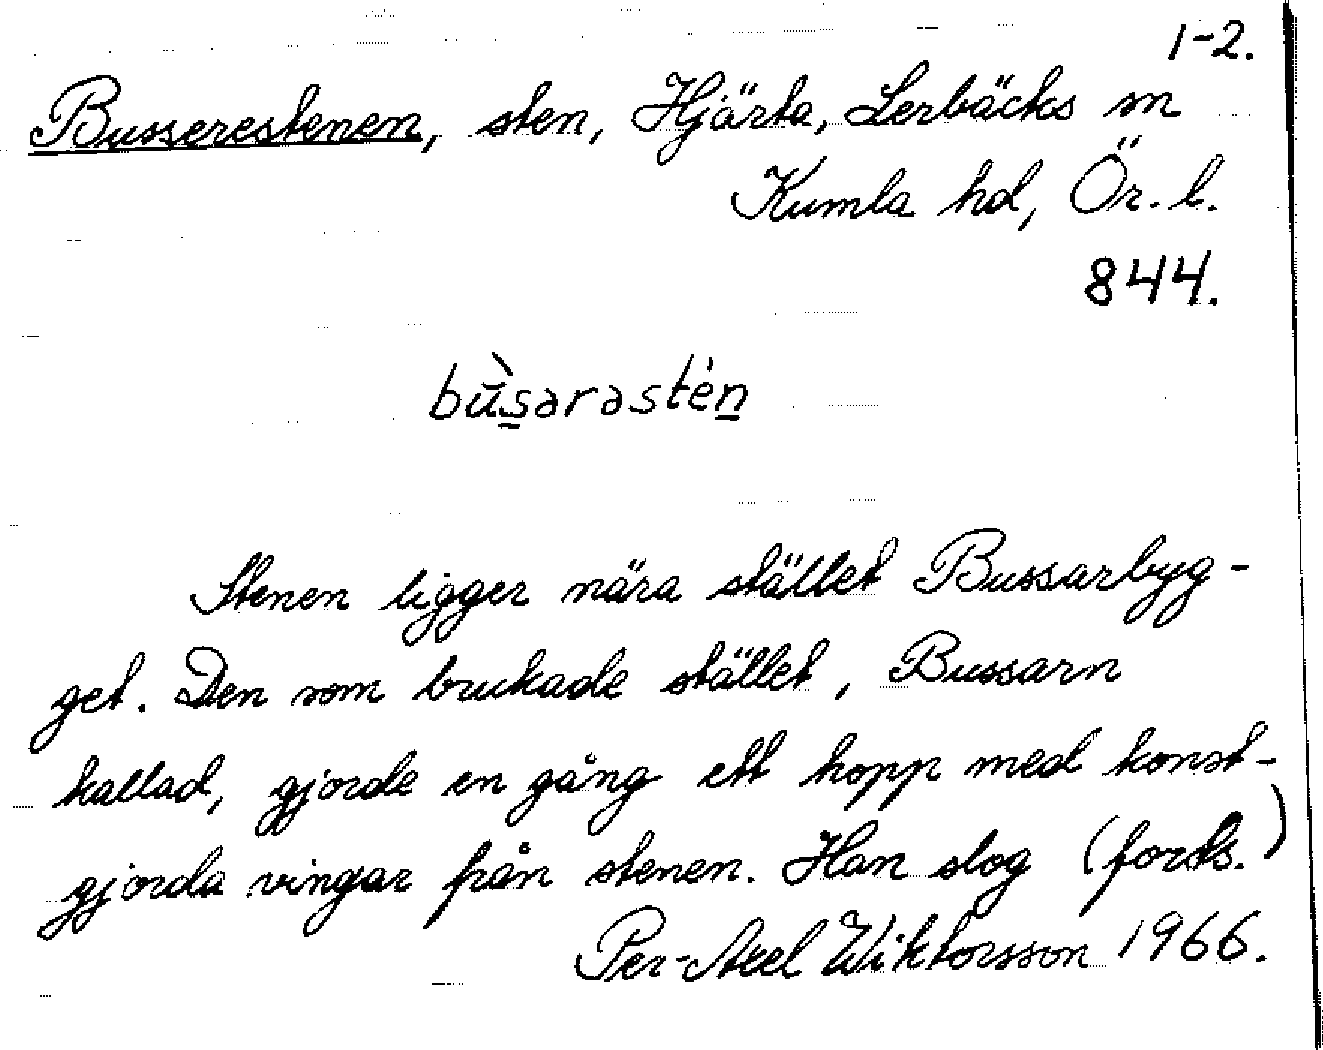 1-2.
Busserestenen, sten, Hjärta, Lerbäcks sn
Kumla hd, Ör. l.
844.
bu̇̀sarastén
Stenen ligger nära stället Bussarbyg-
get. Den som brukade stället, Bussarn
kallad, gjorde en gång ett hopp med konst-
gjorda vingar från stenen. Han slog (forts.)
Per-Axel Wiktorsson 1966.